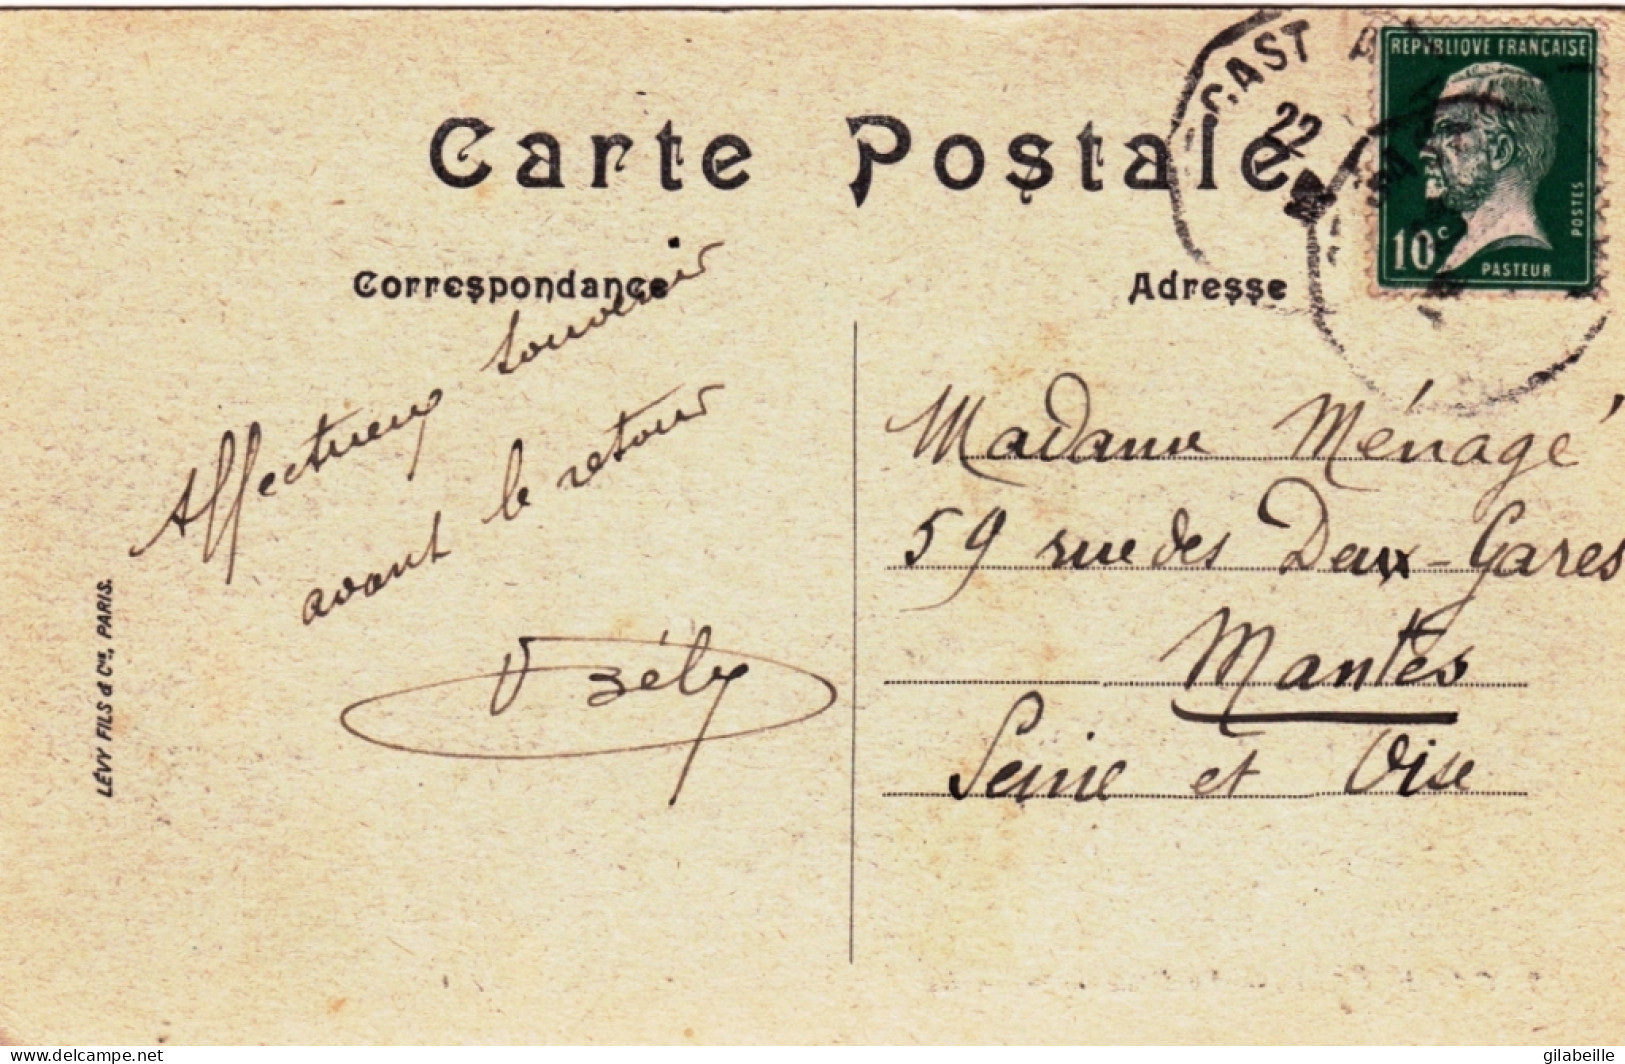 Carte Postale
Correspondance
Adresse
REPVBLIQVE FRANÇAISE
10c
POSTES
PASTEUR
CAST
22
Affectueux souvenir
avant le retour
LÉVY FILS & Cie, PARIS.
Madame Ménagé
59 rue des Deux-Gares
Mantes
Seine et Oise
delcampe.net
gilabeille